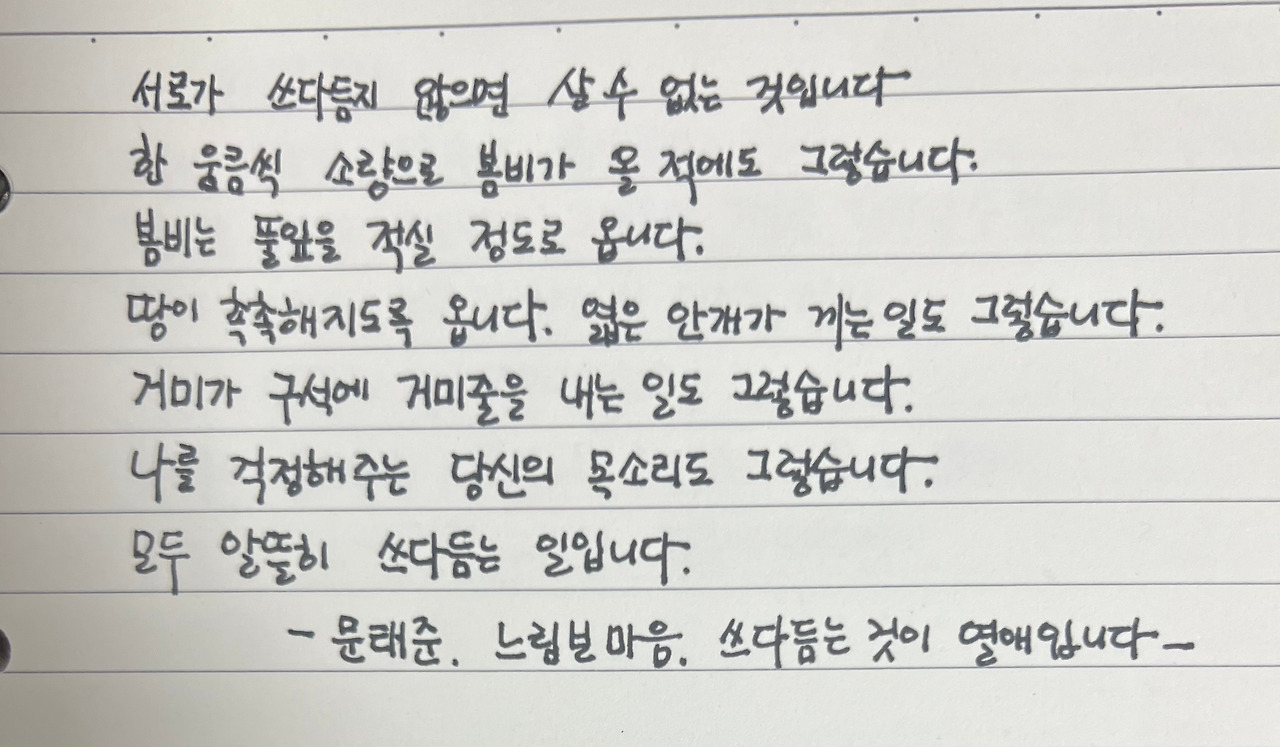 서로가 쓰다듬지 않으면 살 수 없는 것입니다
한 움큼씩 소량으로 봄비가 올 적에도 그렇습니다.
봄비는 풀잎을 적실 정도로 옵니다.
땅이 촉촉해지도록 옵니다. 엷은 안개가 끼는 일도 그렇습니다.
거미가 구석에 거미줄을 내는 일도 그렇습니다.
나를 걱정해주는 당신의 목소리도 그렇습니다.
모두 알뜰히 쓰다듬는 일입니다.
- 문태준. 느림보 마음. 쓰다듬는 것이 열애입니다 -